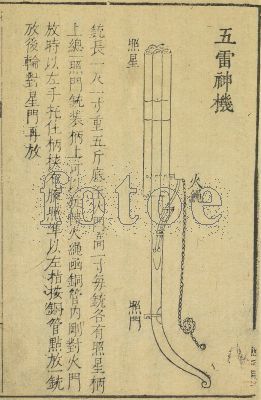 五雷神機
火繩
照星
照門
銃長一尺一寸重五斤底至
門高一寸每銃各有照星柄
上總照門銃裝柄上
轉火繩函銅管內剛對火門
放時以左手托住柄
照準以左指按銅管點放一銃
放後輪對星門再放
Fotoe